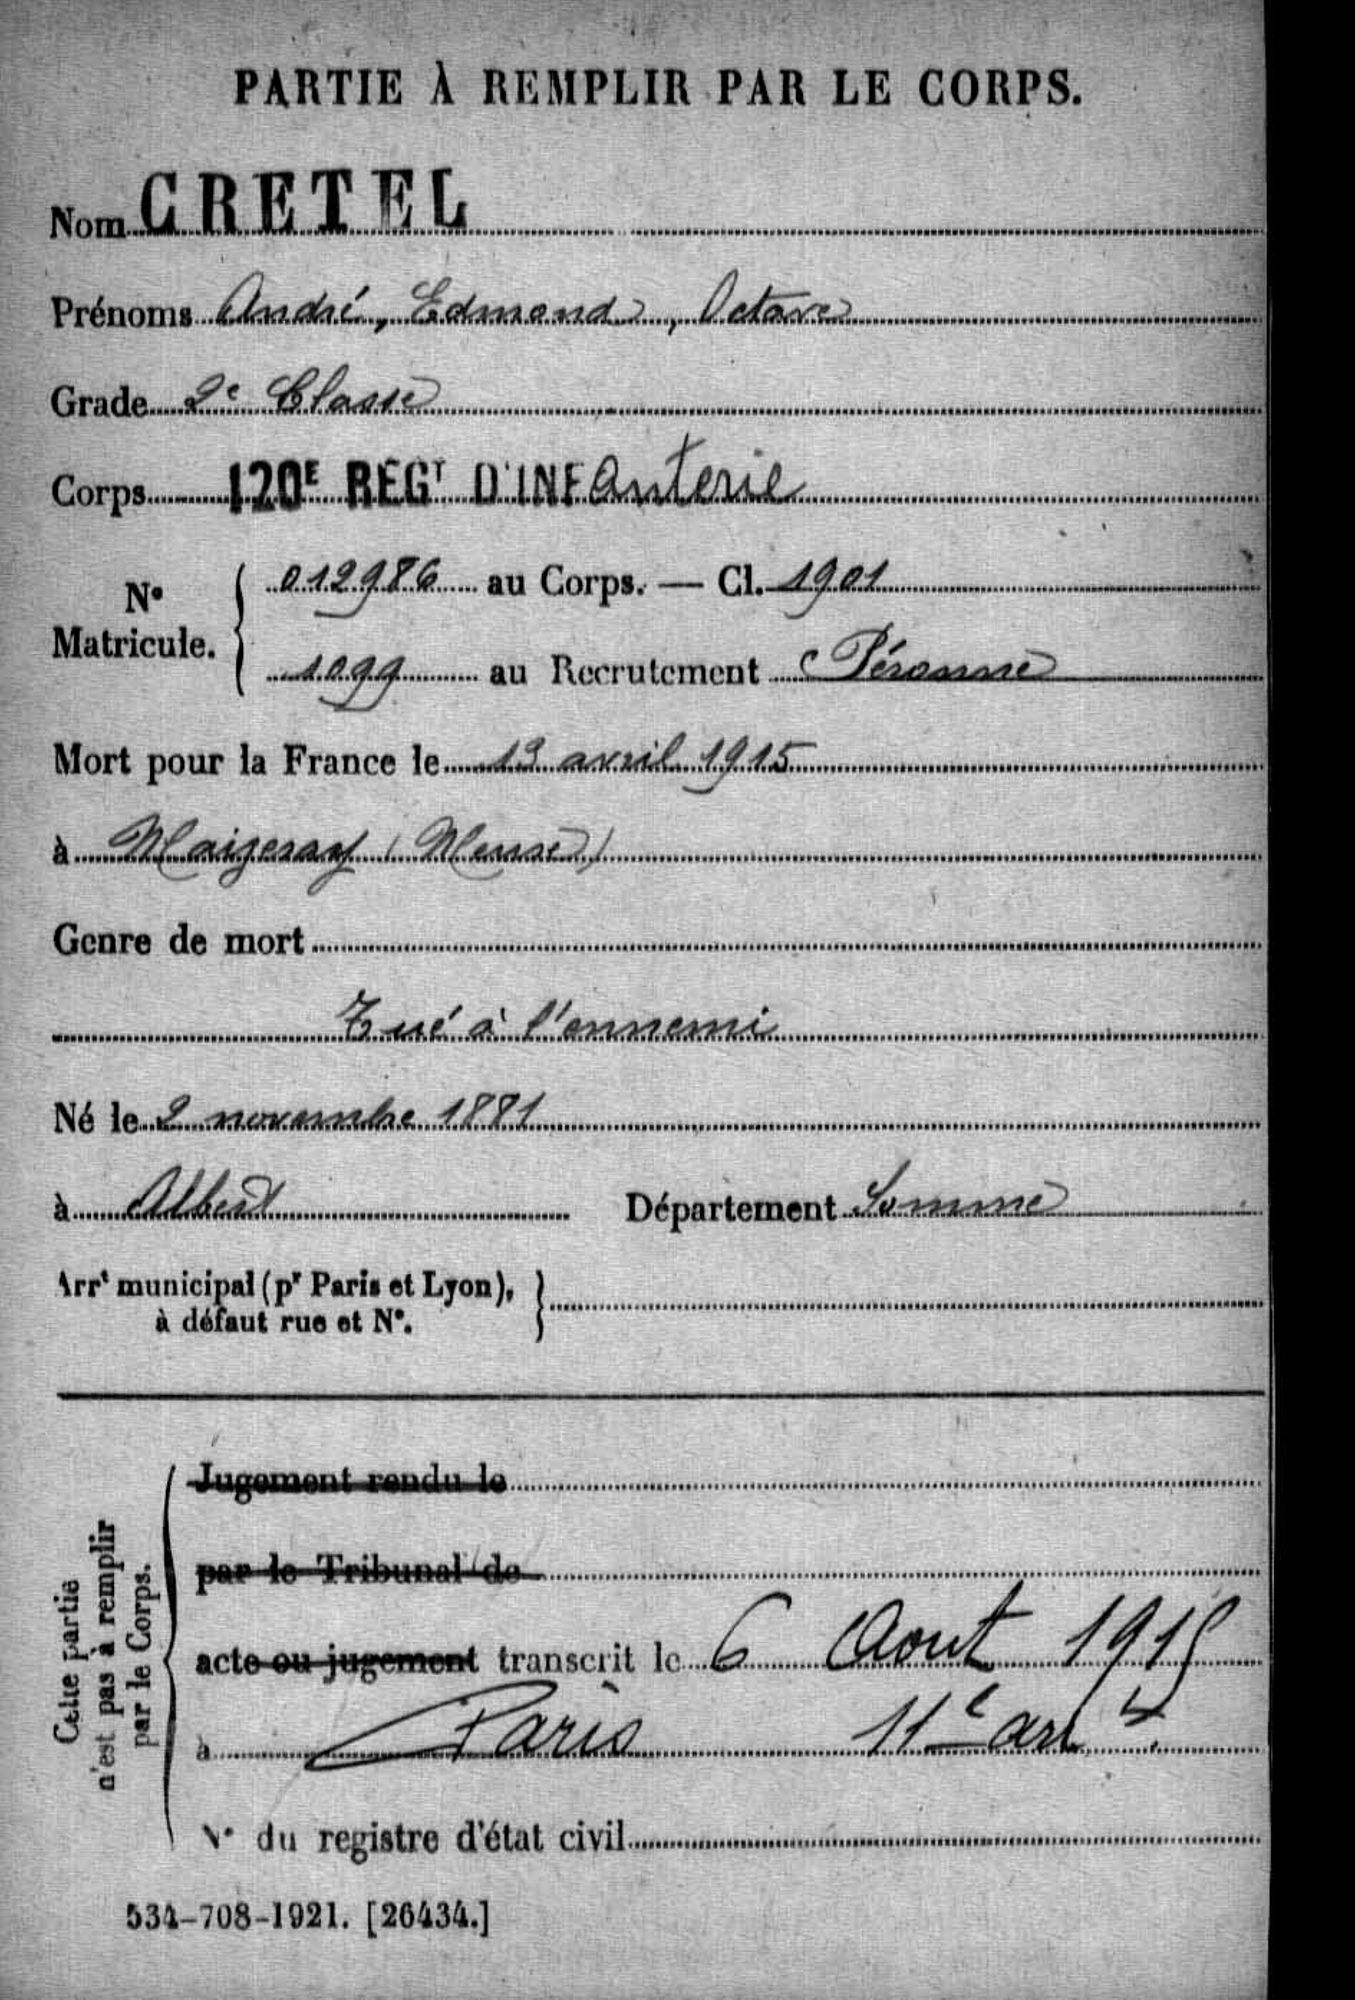 PARTIE À REMPLIR PAR LE CORPS.
Nom CRETEL
Prénoms André, Edmond, Octave
Grade 2e Classe
Corps 120E REGT D'INFanterie
No Matricule. 012986 au Corps. — Cl. 1901
1099 au Recrutement Péronne
Mort pour la France le 13 avril 1915
à Maizeray (Meuse)
Genre de mort
Tué à l'ennemi
Né le 2 novembre 1881
à Albert Département Somme
Arrt municipal (pr Paris et Lyon),
à défaut rue et No.
Cette partie
n'est pas à remplir
par le Corps.
Jugement rendu le
par le Tribunal de
acte ou jugement transcrit le 6 Aout 1915
à Paris 11e arrt.
No du registre d'état civil
534-708-1921. [26434.]